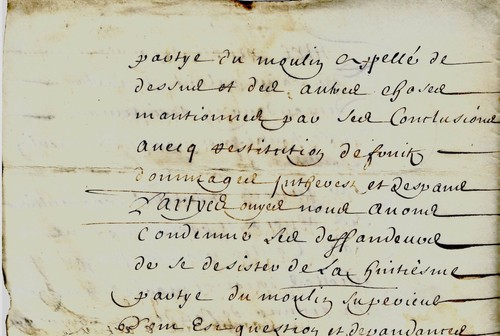 partye du moulin appellé de
dessus et des autres choses
mantionnees par ses Conclusions
avecq restitution de fruitz
dommages Inthevest et despans
Partyes ouyes nous avons
Condemné les deffandeurs
de se desister de la huitiesme
partye du moulin superieur
dom Est question et depandances